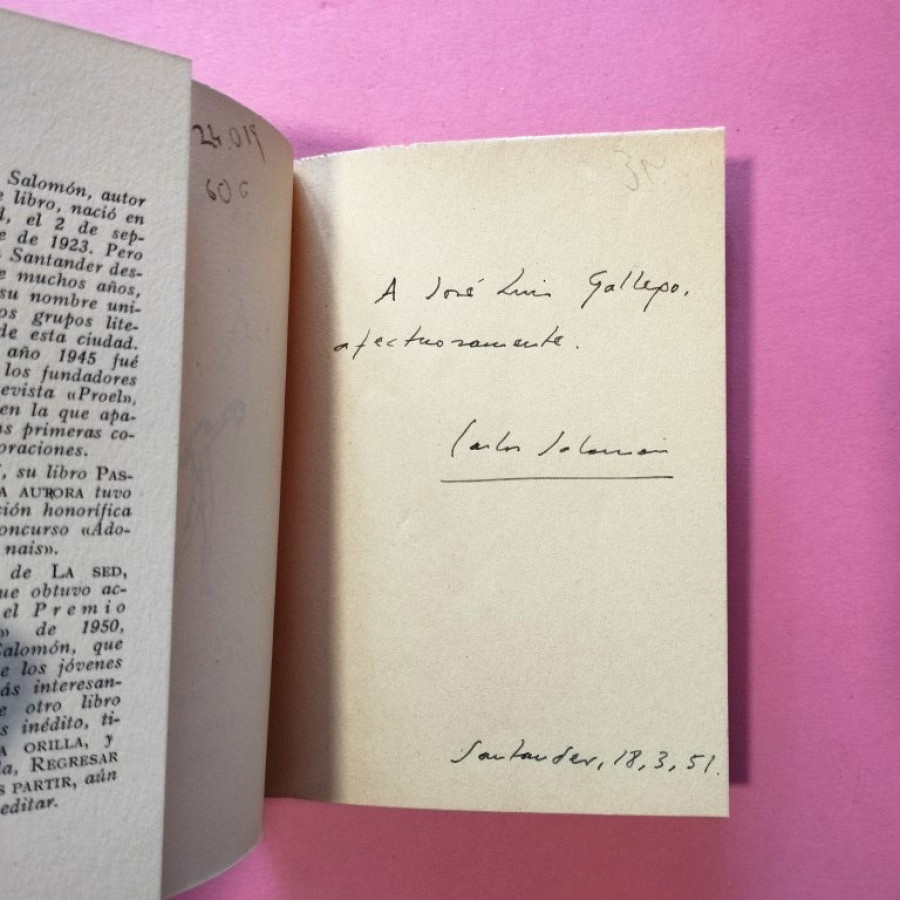 Salomón, autor
libro, nació en
el 2 de sep-
de 1923. Pero
Santander des-
muchos años,
su nombre uni-
grupos lite-
de esta ciudad.
año 1945 fué
los fundadores
evista «Proel»,
en la que apa-
primeras co-
oraciones.
su libro PAS-
A AURORA tuvo
ción honorífica
oncurso «Ado-
nais».
de LA SED,
ue obtuvo ac-
el Premio
» de 1950,
Salomón, que
e los jóvenes
ás interesan-
otro libro
s inédito, ti-
A ORILLA, y
REGRESAR
PARTIR, aún
editar.
24.019
606
A José Luis Gallego,
afectuosamente.
Carlos Salomón
Santander, 18, 3, 51.